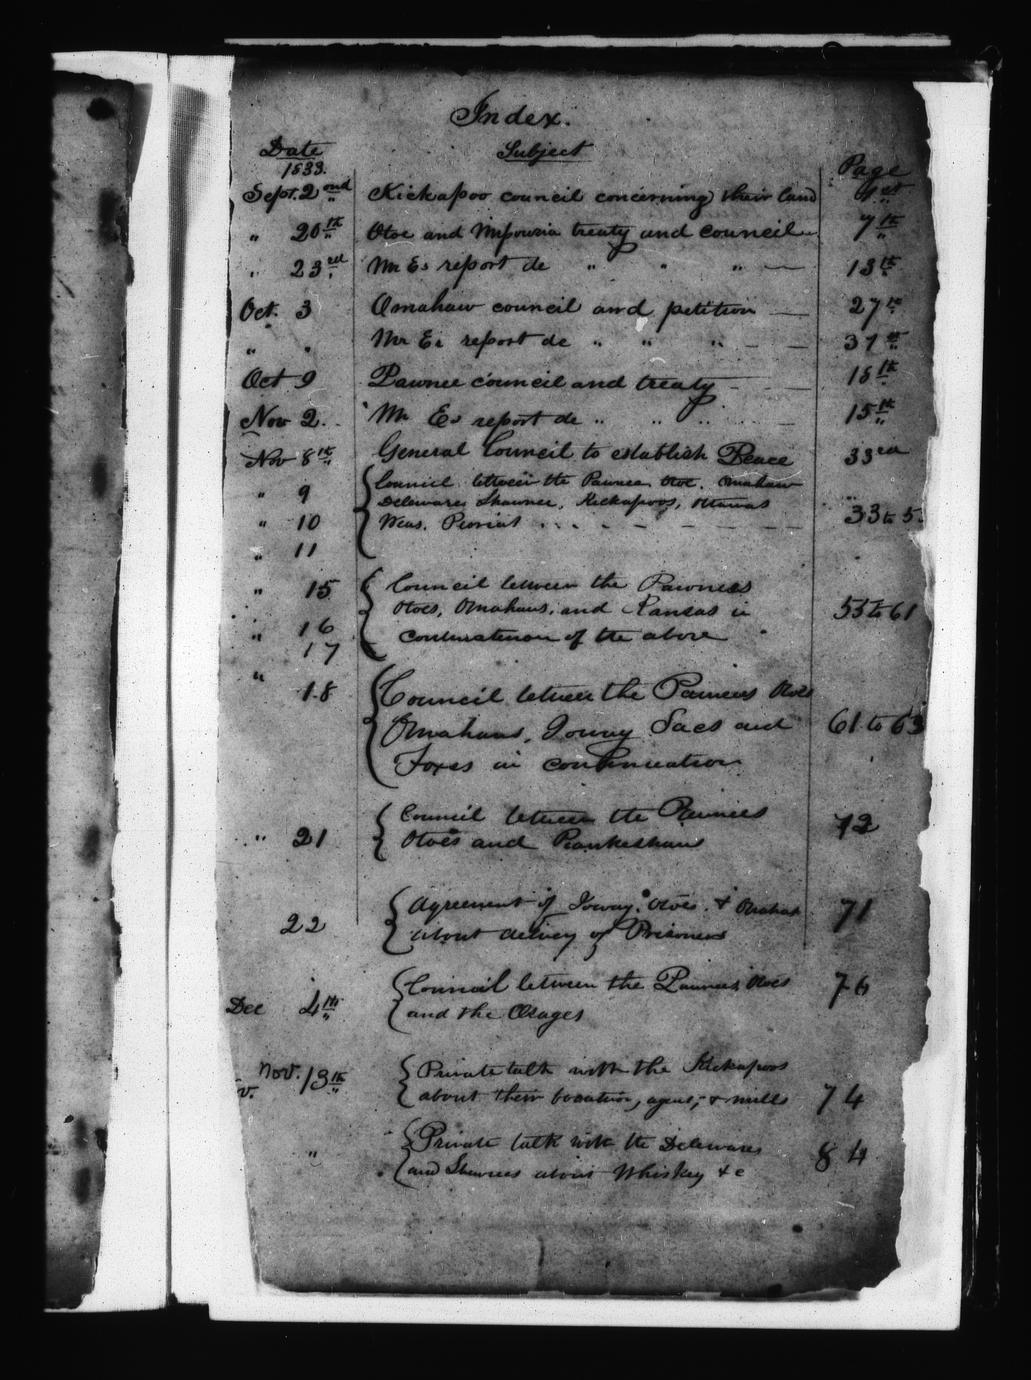 Index.
Date Subject Page
1833.
Sept. 2ond Kickapoo council concerning their land 1st
" 20th Otoe and Missouria treaty and council 7th
" 23red Mr Es report do " " " 13th
Oct. 3 Omahaw council and petition 27th
" " Mr Es report do " " " 37th
Oct 9 Pawnee council and treaty 15th
Nov 2. Mr Es report do " " " 15th
Nov 8th General Council to establish Peace 33red
" 9 Council between the Pawnee, Otoe, Omahaw
Delawares Shawnee, Kickapoos, Ottawas
" 10 Weas, Piorias 33 to 5
" 11
" 15 Council between the Pawnees
Otoes, Omahaws, and Kansas in 55 to 61
" 16 continuation of the above
17
" 18 Council between the Pawnees Otoes
Omahaws, Ioway Sacs and 61 to 63
Foxes in continuation
" 21 Council between the Pawnees 72
Otoes and Piankeshaws
22 Agreement of Ioway, Otoes, & Omahas 71
about delivery of Prisoners
Dec 4th Council between the Pawnees Otoes 76
and the Osages
Nov. 13th Private talk with the Kickapoos
v. about their location, agent, & mills 74
" Private talk with the Delawares 84
and Shawnees about Whiskey &c